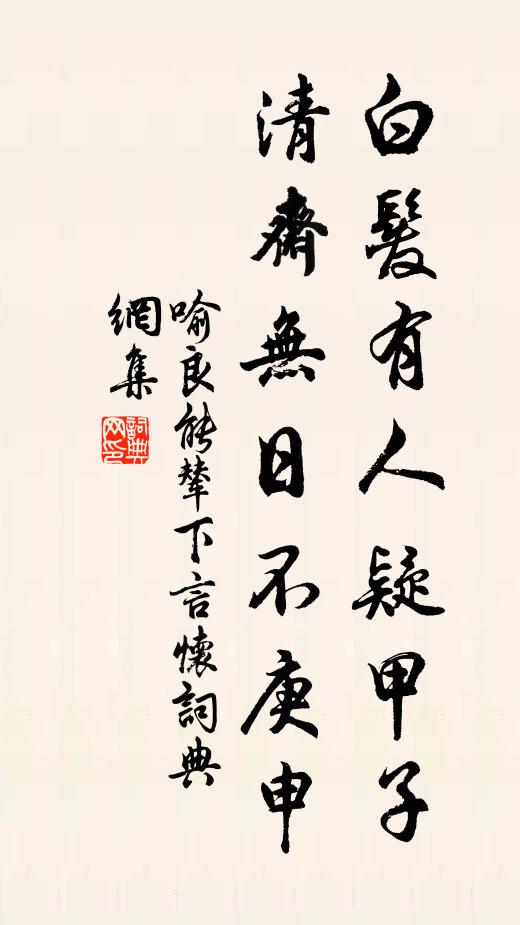 白髮有人疑甲子
清齋無日不庚申
喻良能輦下言懷詞典
網集
詞典
网印